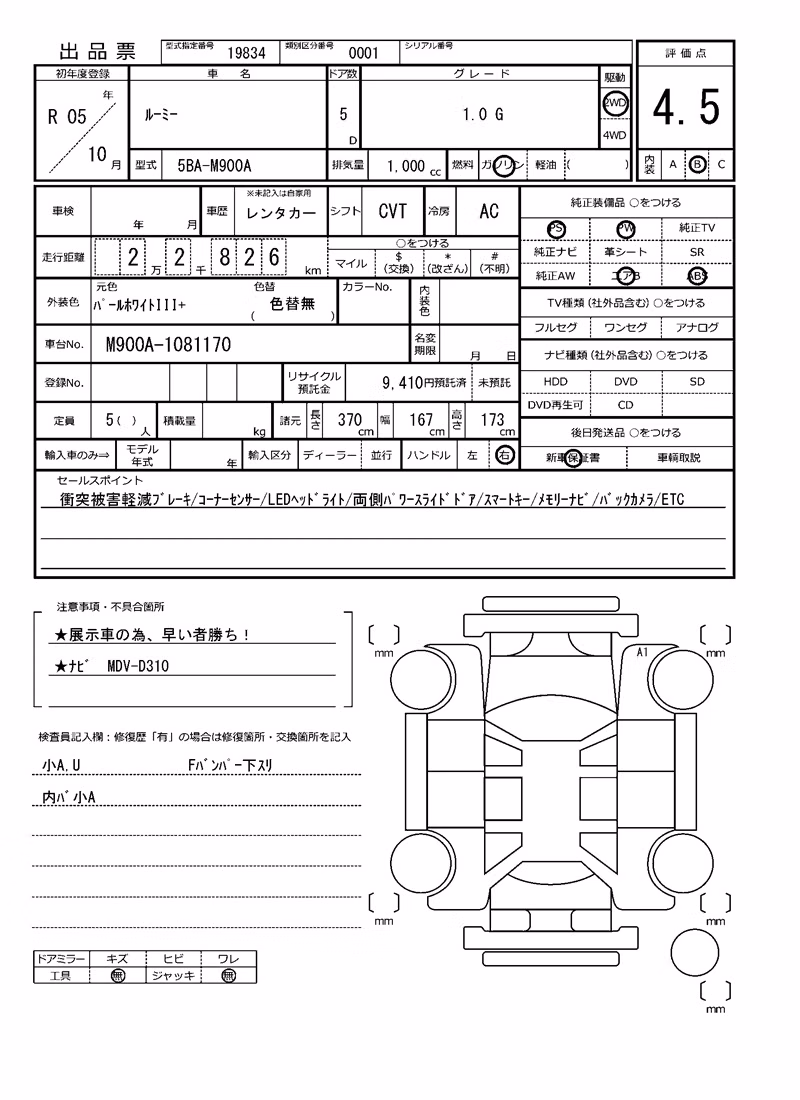 出品票 型式指定番号 19834 類別区分番号 0001 シリアル番号 評価点
初年度登録 車名 ドア数 グレード 駆動
R 05 年 10 月 ルーミー 5 D 1.0 G 2WD 4WD 4.5
型式 5BA-M900A 排気量 1,000 cc 燃料 ガソリン 軽油 ( ) 内装 A B C
車検 年 月 車歴 ※未記入は自家用 レンタカー シフト CVT 冷房 AC
純正装備品 ○をつける
PS PW 純正TV
走行距離 2 万 2 千 8 2 6 km ○をつける
マイル $ (交換) * (改ざん) # (不明)
純正ナビ 革シート SR
純正AW エアB ABS
外装色 元色 パールホワイトIII+ 色替 ( 色替無 ) カラーNo. 内装色
TV種類(社外品含む)○をつける
フルセグ ワンセグ アナログ
車台No. M900A-1081170 名変期限 月 日
ナビ種類(社外品含む)○をつける
HDD DVD SD
DVD再生可 CD
登録No. リサイクル預託金 9,410円預託済 未預託
定員 5( ) 人 積載量 kg 諸元 長さ 370 cm 幅 167 cm 高さ 173 cm
後日発送品 ○をつける
新車保証書 車輌取説
輸入車のみ⇒ モデル年式 年 輸入区分 ディーラー 並行 ハンドル 左 右
セールスポイント
衝突被害軽減ブレーキ/コーナーセンサー/LEDヘッドライト/両側パワースライドドア/スマートキー/メモリーナビ/バックカメラ/ETC
注意事項・不具合箇所
★展示車の為、早い者勝ち!
★ナビ MDV-D310
[ ] mm
[ ] mm
A1
検査員記入欄:修復歴「有」の場合は修復箇所・交換箇所を記入
小A.U Fバンパー下スリ
内バ小A
[ ] mm
[ ] mm
ドアミラー キズ ヒビ ワレ
工具 無 ジャッキ 無
[ ] mm